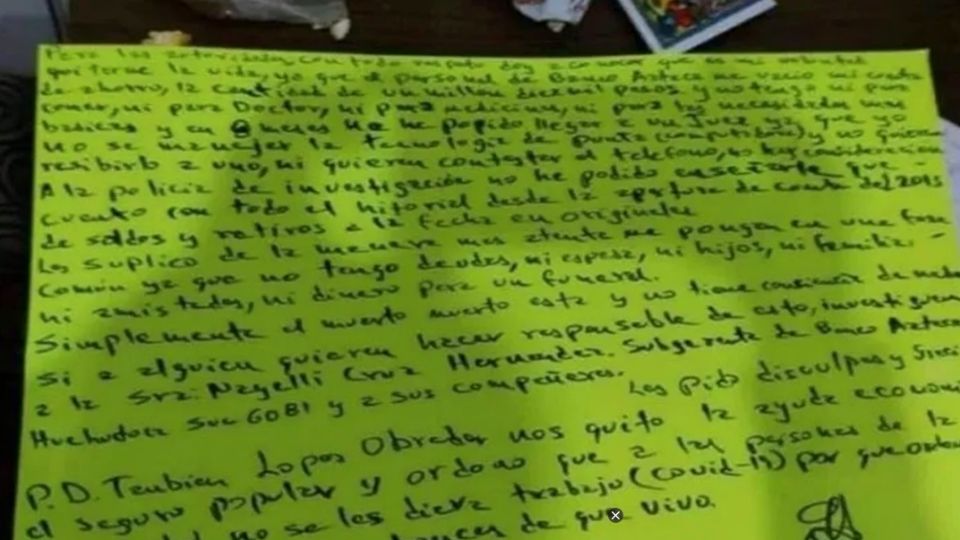 Para las autoridades, con todo respeto doy a conocer que es mi voluntad
quitarme la vida, ya que el personal de Banco Azteca me vacio mi cuenta
de ahorro, la cantidad de un millon diez mil pesos y no tengo ni para
comer, ni para Doctor, ni para medicinas, ni para las necesidades mas
basicas y en meses no he podido llegar a un Juez ya que yo
no se manejar la tecnologia de punta (computadora) y no quieren
resibirlo a uno, ni quieren contestar el telefono, no hay consideracion
A la policia de investigación no he podido enseñarle que -
cuento con todo el hitorial desde la apertura de cuenta del 2015
de saldos y retiros a la fecha en originales
Les suplico de la manera mas atenta me pongan en una fosa
común ya que no tengo deudas, ni esposa, ni hijos, ni familia -
ni amistades, ni dinero para un funeral.
Simplemente el muerto muerto esta y no tiene conciencia de nada
si a alguien quieren hacer responsable de esto, investiguen
a la Sra: Nayelli Cruz Hernandez. Subgerente de Banco Azteca
Huehuetoca Suc 6081 y a sus compañeros. Les pido disculpas y
P.D. Tanbien Lopes Obrador nos quito la ayuda
el seguro popular y ordeno que a las personas de la
no se les diera trabajo (covid-19) por que
de que vivo.